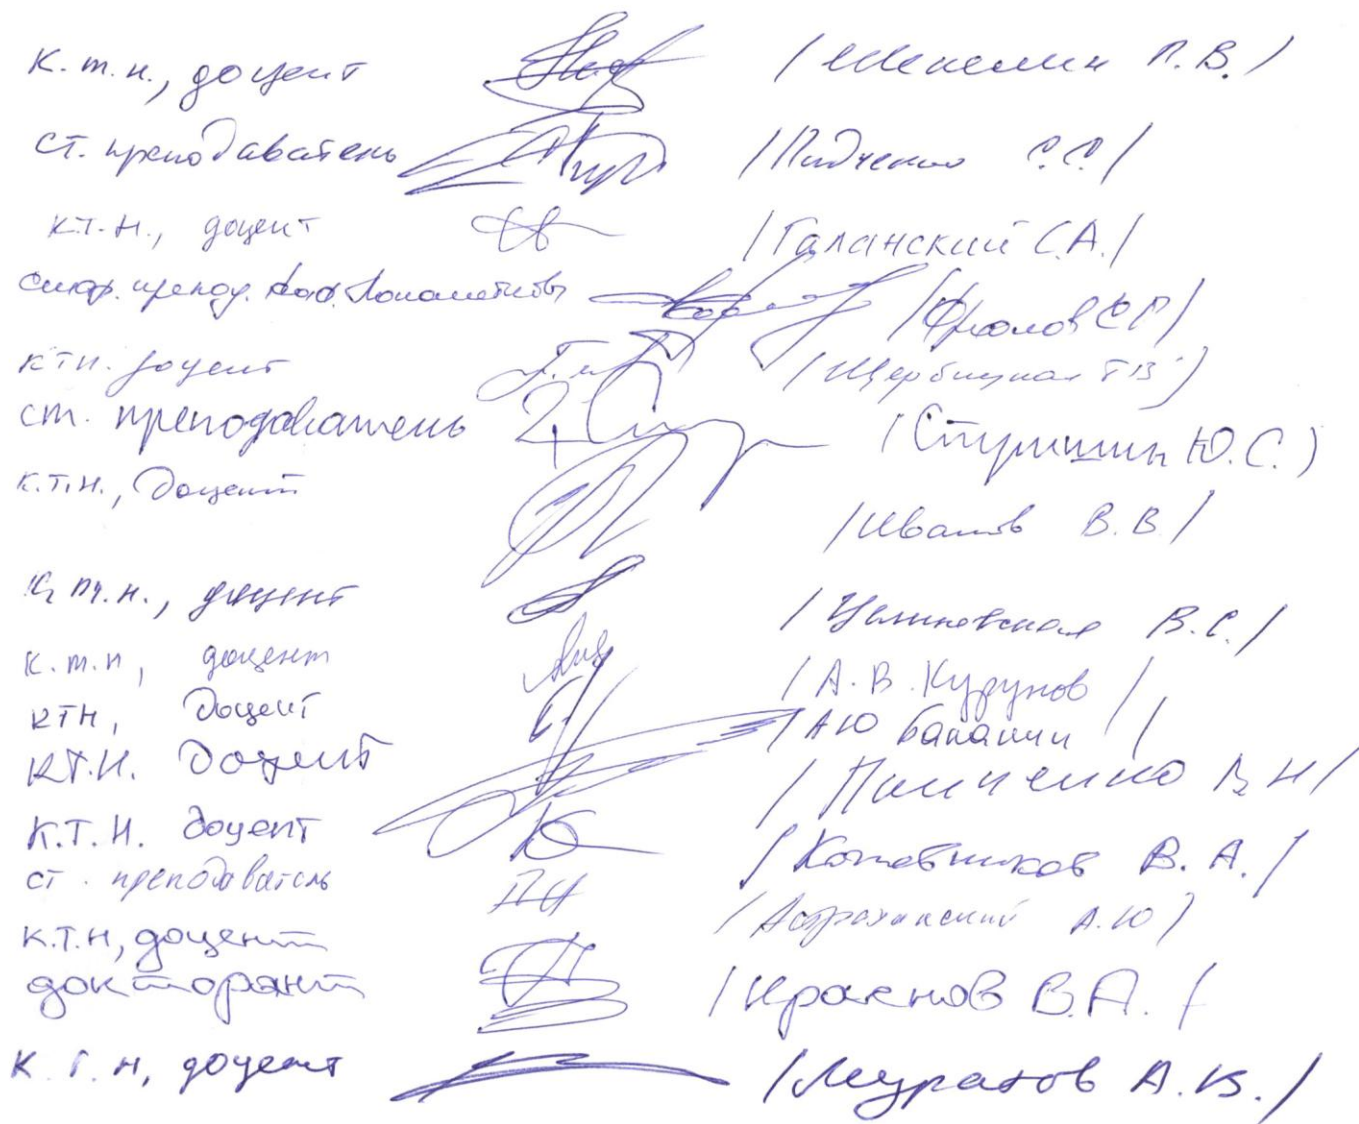 к.т.н., доцент / Шепелин П.В. /
ст. преподаватель / Пидченко С.С. /
к.т.н., доцент / Галанский С.А. /
препод. каф. Локомотивы / Фролов С.Г /
ктн. доцент / Щербицкая Т В )
ст. преподаватель ( Ю.С. )
к.т.н., доцент / Иванов В.В /
к.т.н., доцент / Целиковская В.С. /
к.т.н, доцент / А.В. Курунов /
ктн, доцент / АЮ Балакин /
к.т.н. доцент / Панченко В Н /
к.т.н. доцент / Кожевников В.А. /
ст. преподаватель / Астраханский А.Ю )
к.т.н, доцент
докторант / Краснов В.А. /
к.т.н, доцент / Муратов А.В. /